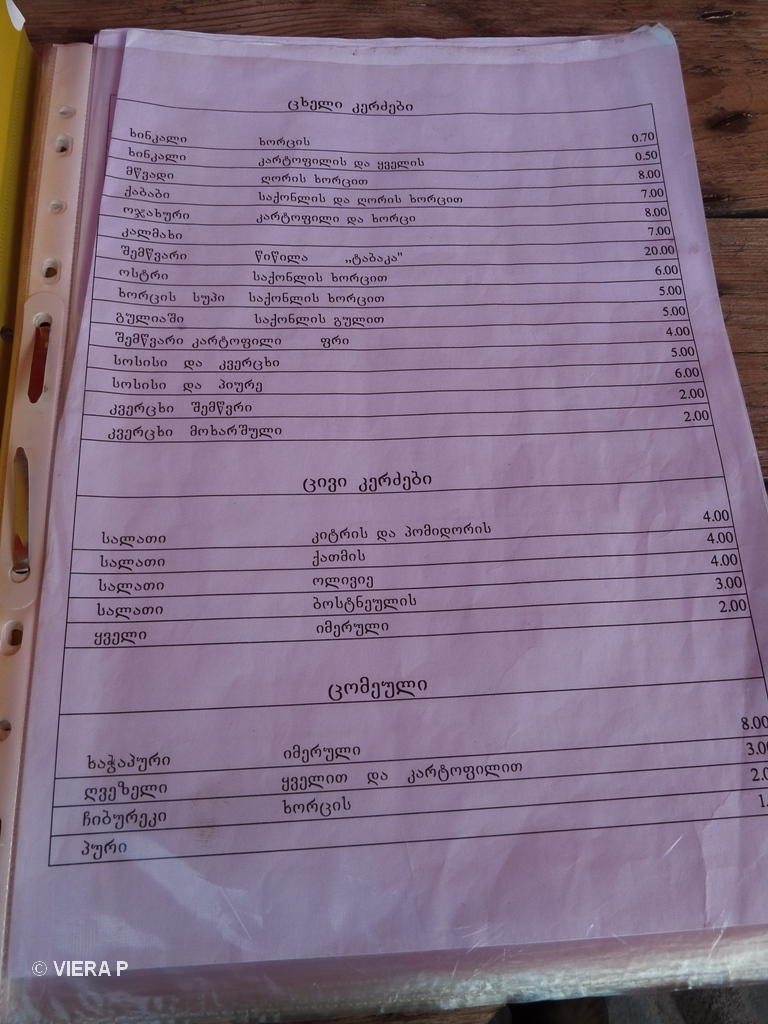 ცხელი კერძები
ხინკალი ხორცის 0.70
ხინკალი კარტოფილის და ყველის 0.50
მწვადი ღორის ხორცით 8.00
ქაბაბი საქონლის და ღორის ხორცით 7.00
ოჯახური კარტოფილი და ხორცი 8.00
კალმახი 7.00
შემწვარი წიწილა „ტაბაკა" 20.00
ოსტრი საქონლის ხორცით 6.00
ხორცის სუპი საქონლის ხორცით 5.00
გულიაში საქონლის გულით 5.00
შემწვარი კარტოფილი ფრი 4.00
სოსისი და კვერცხი 5.00
სოსისი და პიურე 6.00
კვერცხი შემწვრი 2.00
კვერცხი მოხარშული 2.00
ცივი კერძები
სალათი კიტრის და პომიდორის 4.00
სალათი ქათმის 4.00
სალათი ოლივიე 4.00
სალათი ბოსტნეულის 3.00
ყველი იმერული 2.00
ცომეული
ხაჭაპური იმერული 8.00
ღვეზელი ყველით და კარტოფილით 3.00
ჩიბურეკი ხორცის 2.0
პური 1.
© VIERA P